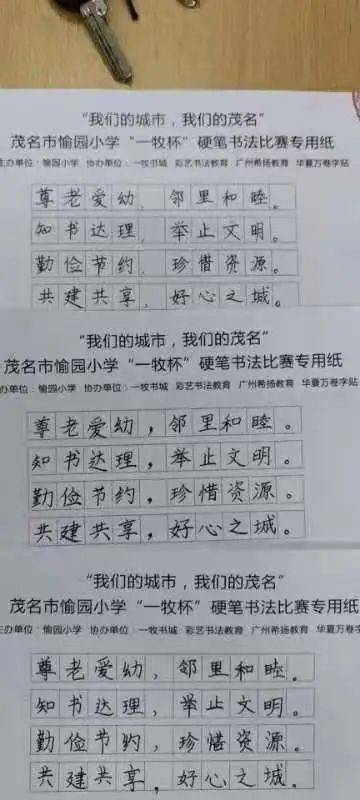 “我们的城市，我们的茂名”
茂名市愉园小学“一牧杯”硬笔书法比赛专用纸
主办单位：愉园小学 协办单位：一牧书城 彩艺书法教育 广州希扬教育 华夏万卷字帖
尊老爱幼，邻里和睦。
知书达理，举止文明。
勤俭节约，珍惜资源。
共建共享，好心之城。
“我们的城市，我们的茂名”
茂名市愉园小学“一牧杯”硬笔书法比赛专用纸
办单位：愉园小学 协办单位：一牧书城 彩艺书法教育 广州希扬教育 华夏万卷字帖
尊老爱幼，邻里和睦。
知书达理，举止文明。
勤俭节约，珍惜资源。
共建共享，好心之城。
“我们的城市，我们的茂名”
茂名市愉园小学“一牧杯”硬笔书法比赛专用纸
办单位：愉园小学 协办单位：一牧书城 彩艺书法教育 广州希扬教育 华夏万卷字
尊老爱幼，邻里和睦。
知书达理，举止文明。
勤俭节约，珍惜资源。
共建共享，好心之城。